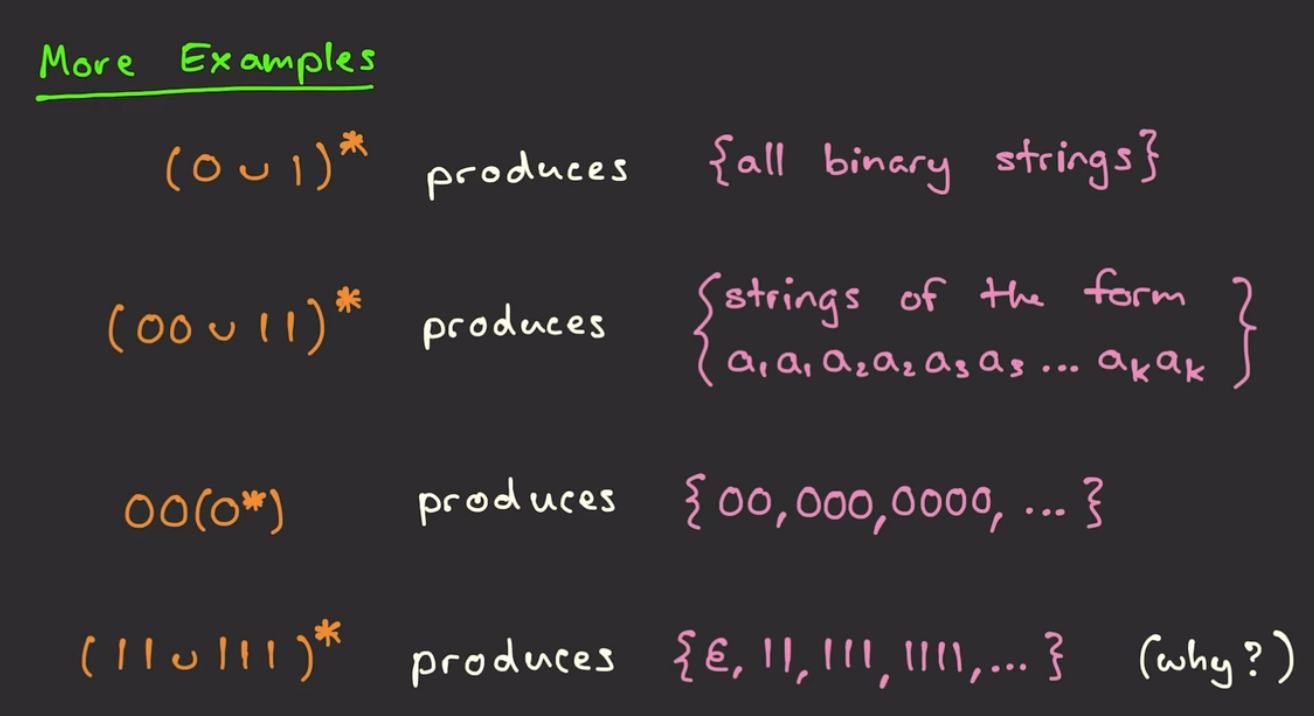 More Examples
(0 ∪ 1)* produces {all binary strings}
(00 ∪ 11)* produces {strings of the form
a₁a₁a₂a₂a₃a₃...aₖaₖ}
00(0*) produces {00,000,0000,...}
(11∪111)* produces {ε, 11, 111, 1111,...} (why?)